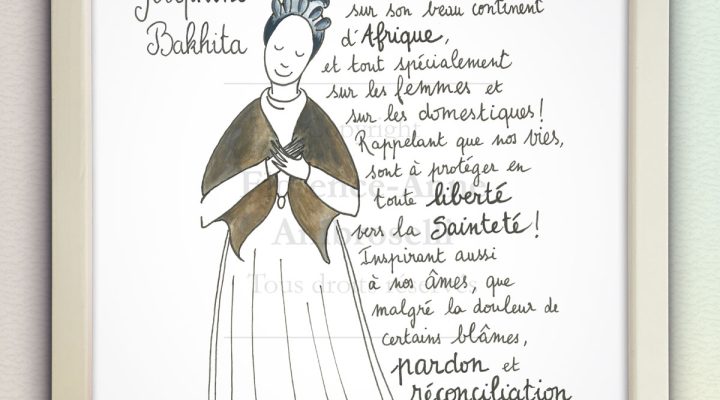 Joséphine
Bakhita
sur son beau continent
d'Afrique,
et tout spécialement
sur les femmes et
sur les domestiques !
Rappelant que nos vies,
sont à protéger en
toute liberté
vers la Sainteté !
Inspirant aussi
à nos âmes, que
malgré la douleur de
certains blâmes,
pardon et
réconciliation
Copyright
Florence-Anne
Ambroselli
Tous droits réservés